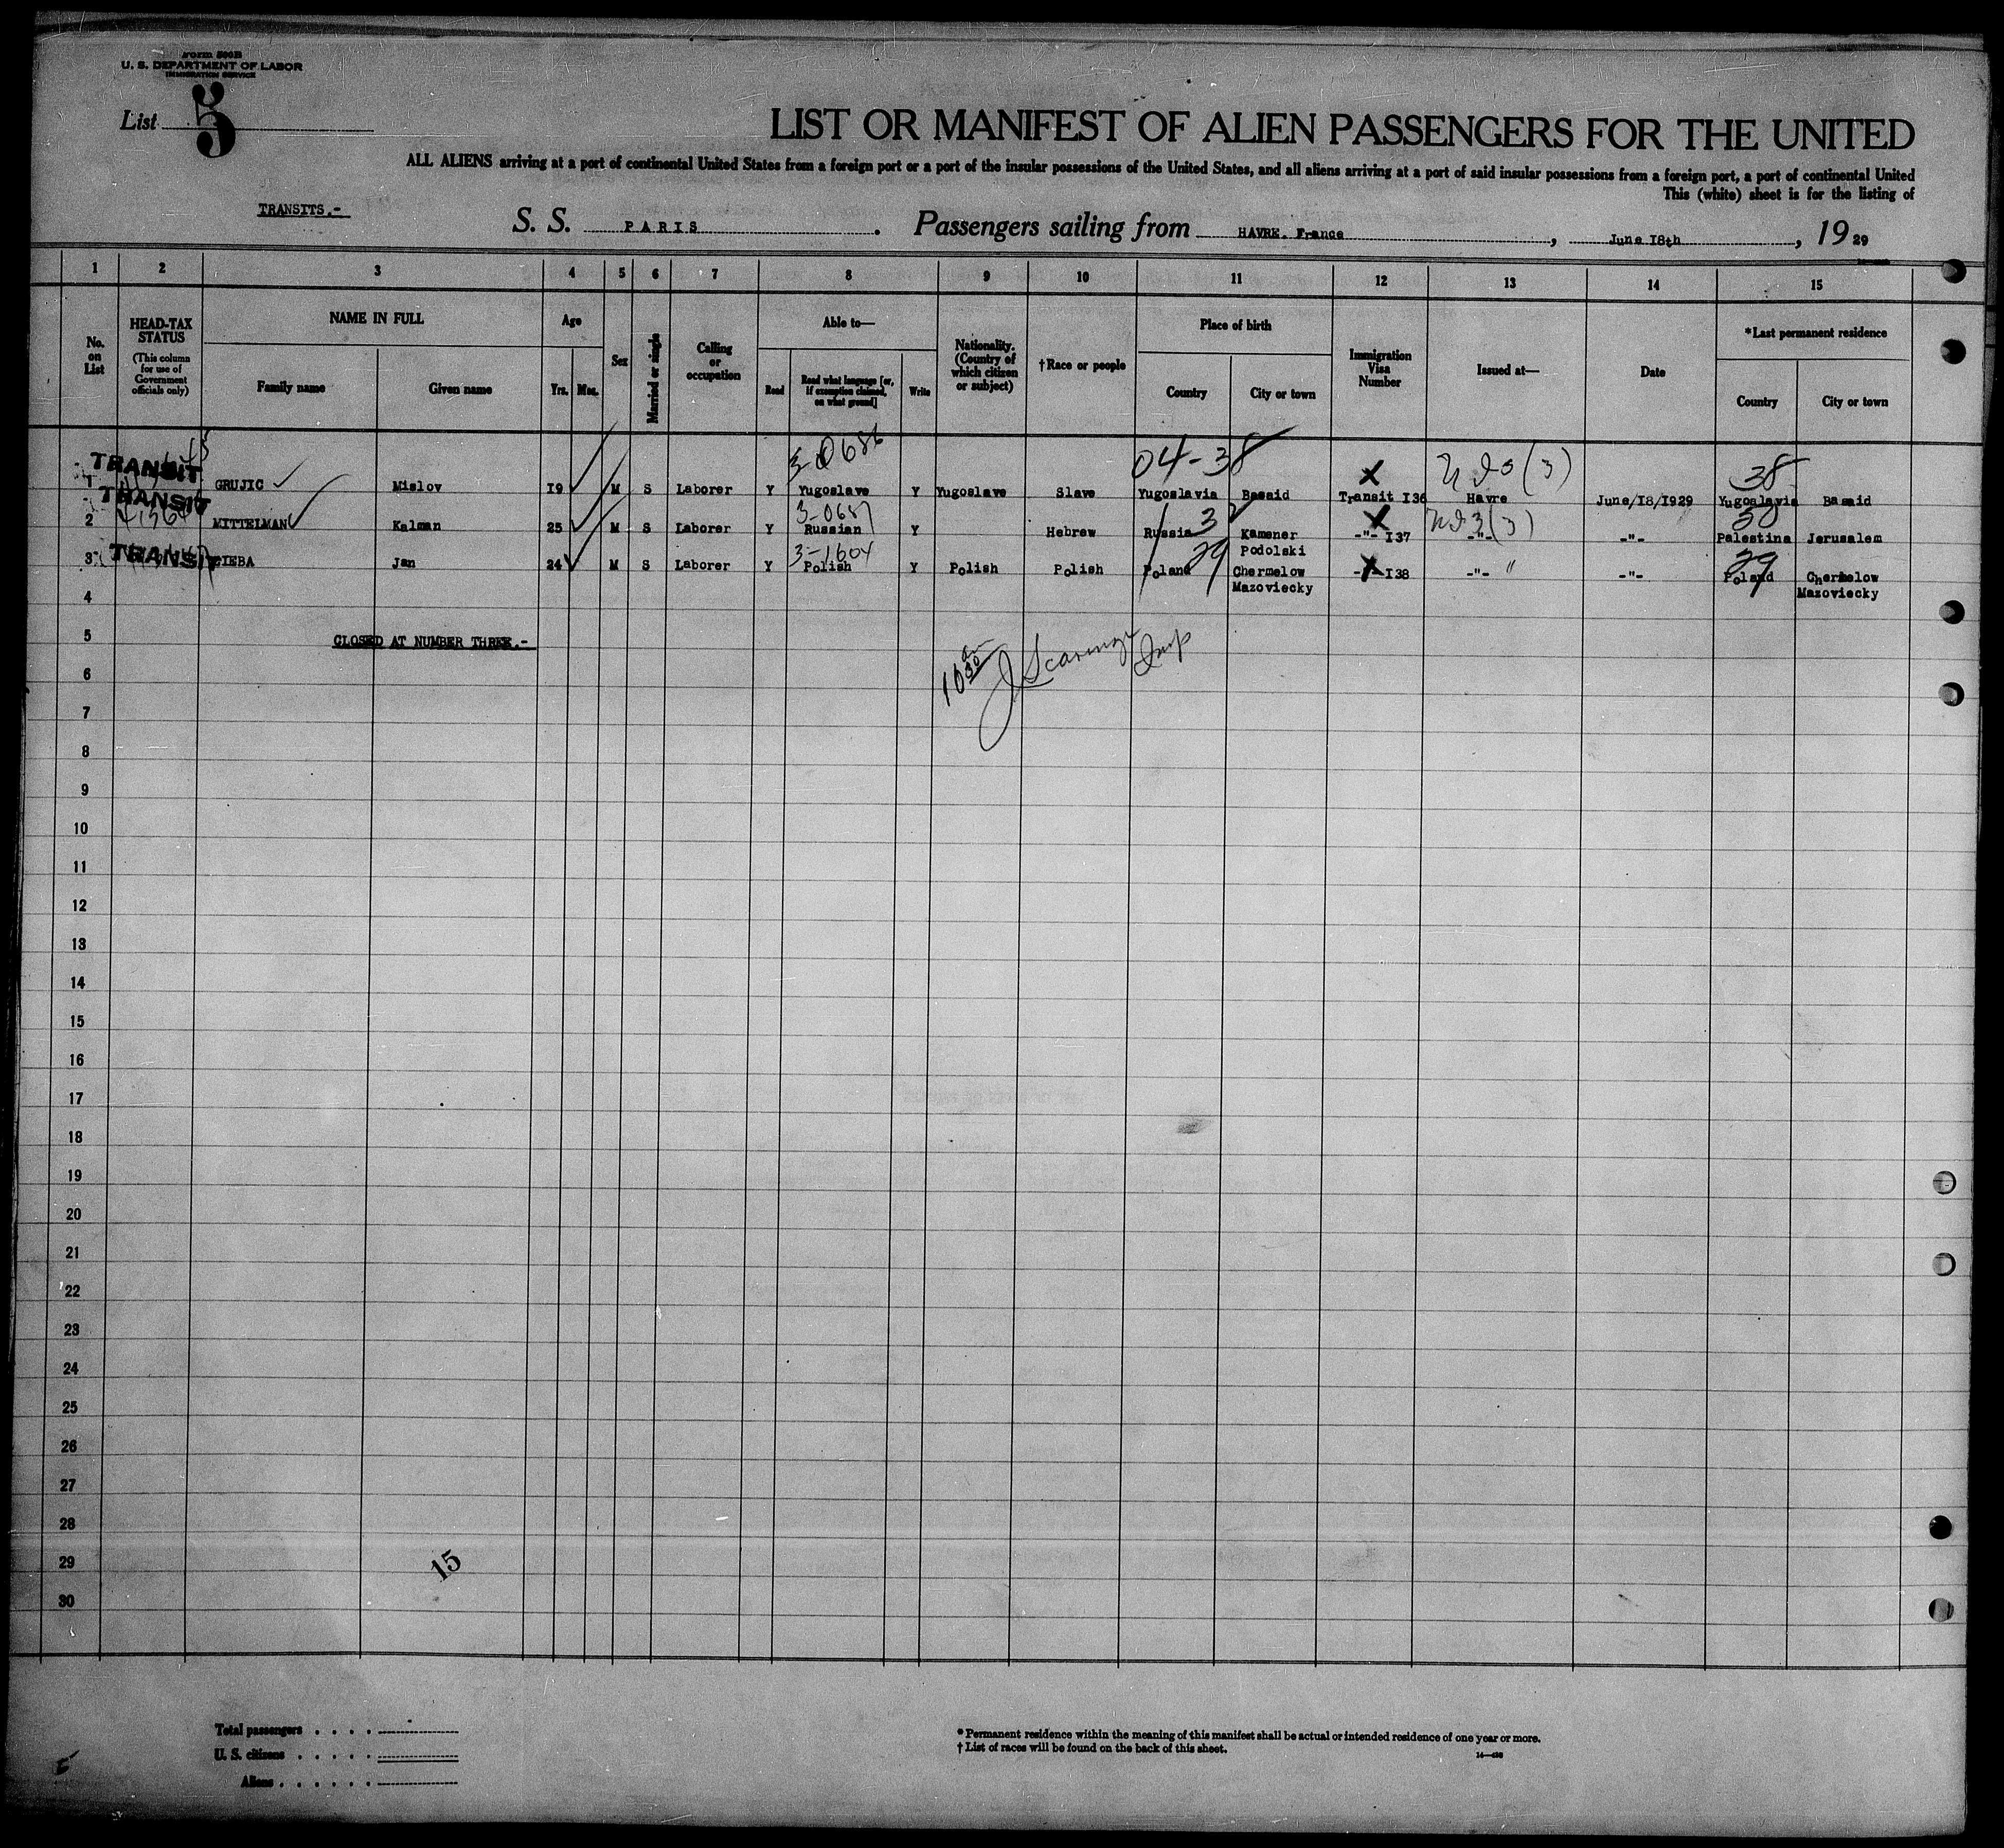 Form 500B
U. S. DEPARTMENT OF LABOR
IMMIGRATION SERVICE
List 5
LIST OR MANIFEST OF ALIEN PASSENGERS FOR THE UNITED
ALL ALIENS arriving at a port of continental United States from a foreign port or a port of the insular possessions of the United States, and all aliens arriving at a port of said insular possessions from a foreign port, a port of continental United
This (white) sheet is for the listing of
TRANSITS.-
S. S. PARIS. Passengers sailing from HAVRE. France, June I8th, 19 29
1 2 3 4 5 6 7 8 9 10 11 12 13 14 15
No. on List
HEAD-TAX STATUS
(This column for use of Government officials only)
NAME IN FULL
Family name Given name
Age
Yrs. Mos.
Sex
Married or single
Calling or occupation
Able to—
Read
Read what language [or, if exemption claimed, on what ground]
Write
Nationality. (Country of which citizen or subject)
†Race or people
Place of birth
Country City or town
Immigration Visa Number
Issued at—
Date
*Last permanent residence
Country City or town
3-0686 04-38 38
1 TRANSIT GRUJIC Mislov I9 M S Laborer Y Yugoslave Y Yugoslave Slave Yugoslavia Basaid Transit I36 Havre June/I8/I929 Yugoslavia Basaid
3-0687 32
2 TRANSIT MITTELMAN Kalman 25 M S Laborer Y Russian Y Hebrew Russia Kamener Podolski -"- I37 -"- -"- Palestina Jerusalem
3-1604 29 29
3 TRANSIT Jan 24 M S Laborer Y Polish Y Polish Polish Poland Chermelow Mazoviecky -"- I38 -"- " -"- Poland Chermelow Mazoviecky
4
5 CLOSED AT NUMBER THREE.-
6
7
8
9
10
11
12
13
14
15
16
17
18
19
20
21
22
23
24
25
26
27
28
29
30
15
Total passengers
U. S. citizens
Aliens
* Permanent residence within the meaning of this manifest shall be actual or intended residence of one year or more.
† List of races will be found on the back of this sheet.